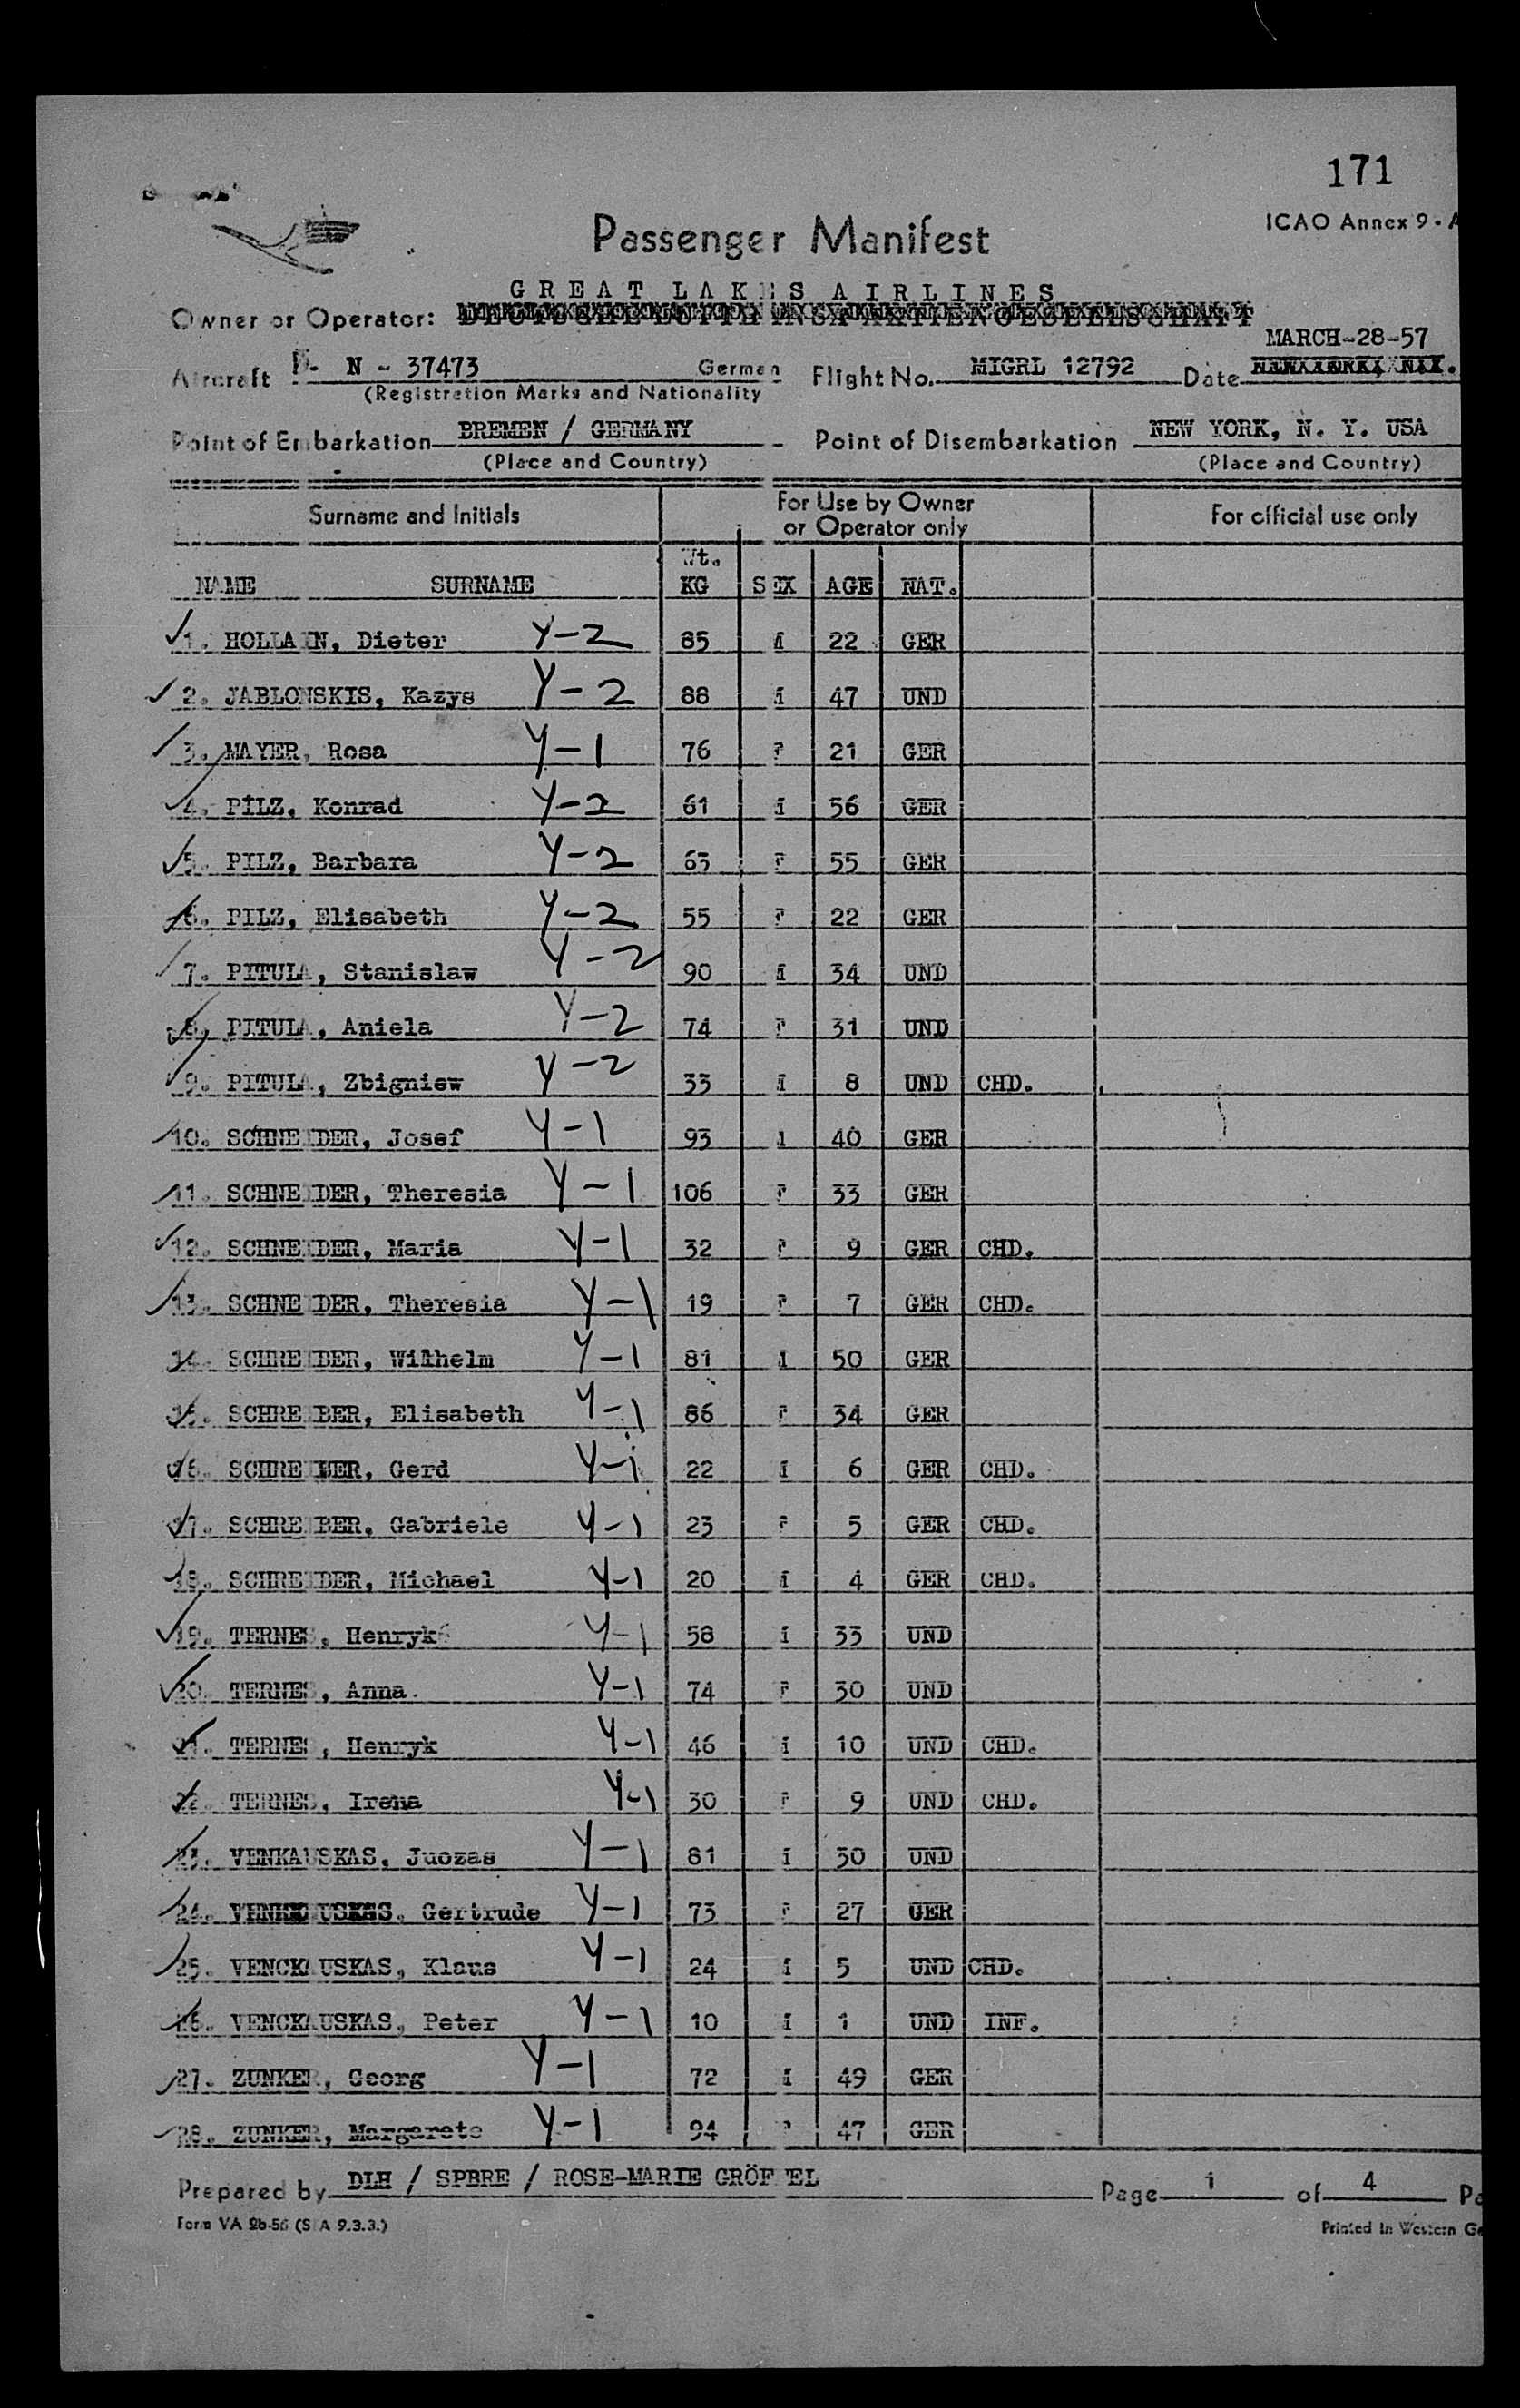 171
ICAO Annex 9 - A
Passenger Manifest
GREAT LAKES AIRLINES
Owner or Operator: DEUTSCHE LUFTHANSA AKTIENGESELLSCHAFT
MARCH-28-57
Aircraft D- N - 37473 German Flight No. MIGRL 12792 Date
(Registration Marks and Nationality
Point of Embarkation BREMEN / GERMANY - Point of Disembarkation NEW YORK, N. Y. USA
(Place and Country) (Place and Country)
Surname and Initials For Use by Owner or Operator only For official use only
NAME SURNAME Wt. KG SEX AGE NAT.
1. HOLLAIN, Dieter Y-2 85 M 22 GER
2. JABLONSKIS, Kazys Y-2 88 M 47 UND
3. MAYER, Rosa Y-1 76 F 21 GER
4. PILZ, Konrad Y-2 61 M 56 GER
5. PILZ, Barbara Y-2 63 F 55 GER
6. PILZ, Elisabeth Y-2 55 F 22 GER
7. PITULA, Stanislaw Y-2 90 M 34 UND
8. PITULA, Aniela Y-2 74 F 31 UND
9. PITULA, Zbigniew Y-2 33 M 8 UND CHD.
10. SCHNEIDER, Josef Y-1 93 M 40 GER
11. SCHNEIDER, Theresia Y-1 106 F 33 GER
12. SCHNEIDER, Maria Y-1 32 F 9 GER CHD.
13. SCHNEIDER, Theresia Y-1 19 F 7 GER CHD.
14. SCHREIBER, Wilhelm Y-1 81 M 50 GER
15. SCHREIBER, Elisabeth Y-1 86 F 34 GER
16. SCHREIBER, Gerd Y-1 22 M 6 GER CHD.
17. SCHREIBER, Gabriele Y-1 23 F 5 GER CHD.
18. SCHREIBER, Michael Y-1 20 M 4 GER CHD.
19. TERNES, Henryk Y-1 58 M 33 UND
20. TERNES, Anna Y-1 74 F 30 UND
21. TERNES, Henryk Y-1 46 M 10 UND CHD.
22. TERNES, Irena Y-1 30 F 9 UND CHD.
23. VENKAUSKAS, Juozas Y-1 81 M 30 UND
24. VENKAUSKAS, Gertrude Y-1 73 F 27 GER
25. VENCKAUSKAS, Klaus Y-1 24 M 5 UND CHD.
26. VENCKAUSKAS, Peter Y-1 10 M 1 UND INF.
27. ZUNKER, Georg Y-1 72 M 49 GER
28. ZUNKER, Margarete Y-1 94 F 47 GER
Prepared by DLH / SPBRE / ROSE-MARIE GRÖFFEL Page 1 of 4 Pa
Form VA 2b-56 (SIA 9.3.3.) Printed in Western Ge